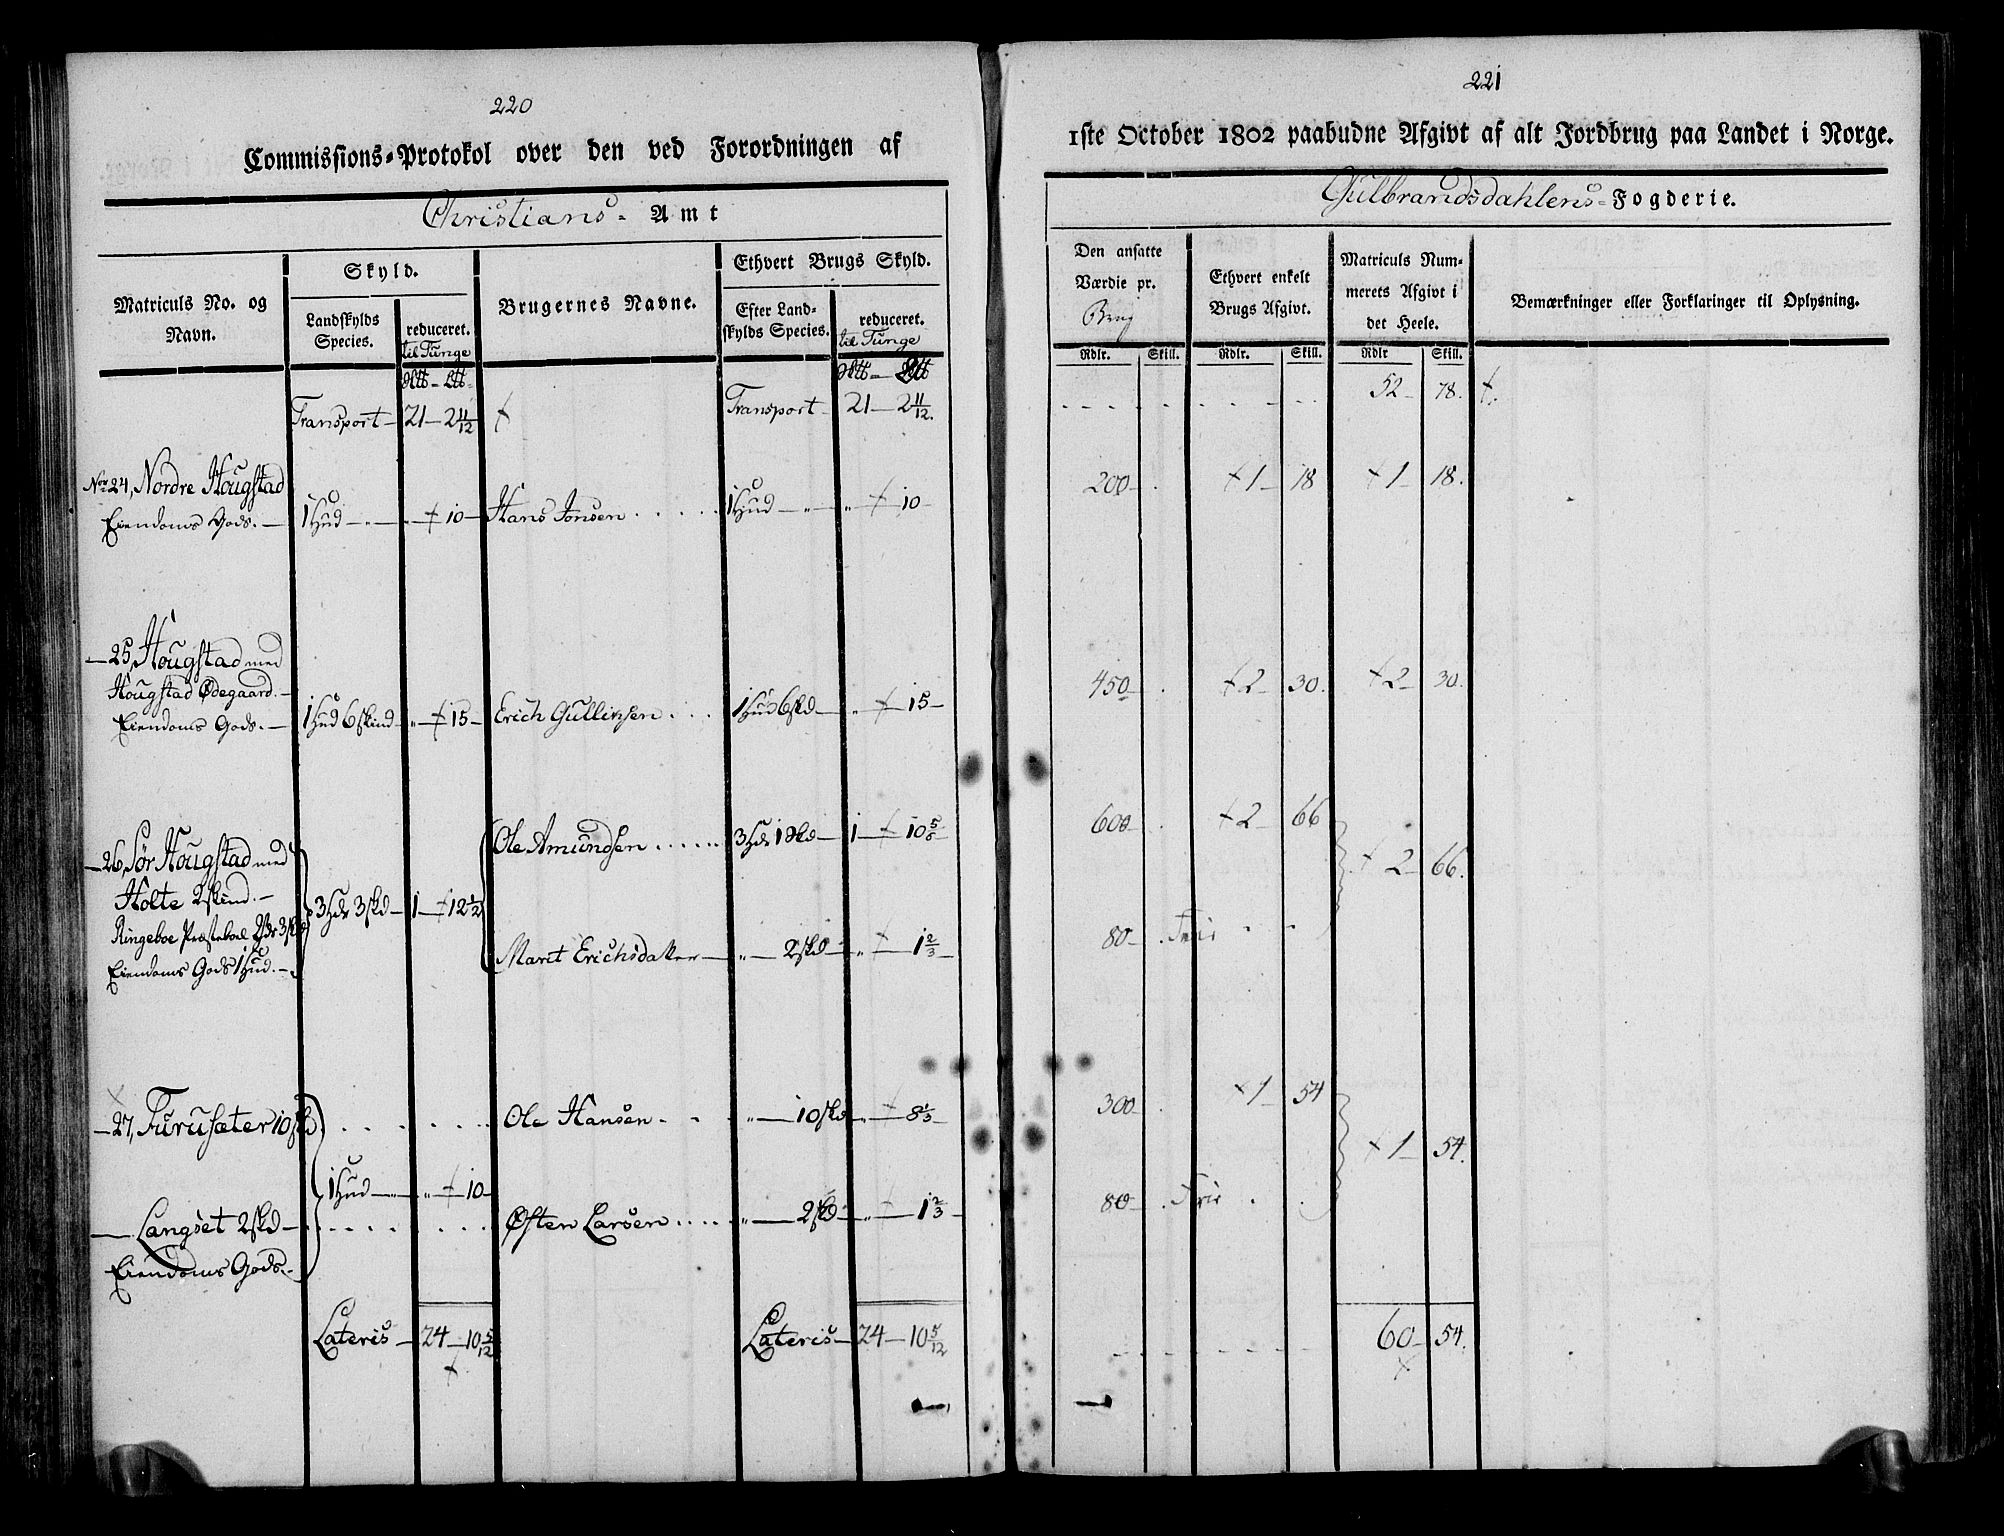 220
Commissions-Protokol over den ved Forordningen af
Christians- Amt
Matriculs No. og Navn.
Skyld.
Landskylds Species.
reduceret.
til Tunge
Brugernes Navne.
Ethvert Brugs Skyld.
Efter Landskylds Species.
reduceret.
til Tunge
Transport- 21-2 11/12 Transport- 21-2 11/12.
No 24, Nordre Hougstad
Eiendoms Gods.- 1 Hud-"- "-10- Hans Jonsen..... 1 Hud-"- "-10-
-25, Hougstad med
Hougstad Ødegaard.-
Eiendoms Gods.- 1 Hud 6 skind- "-15- Erich Gullixsen.... 1 Hud 6 skd- "-15-
-26, Sør Hougstad med Ole Amundsen...... 3 Hdr 1 skd- 1-10 5/6
Holte 2 skind.- 3 Hdr 3 skd- 1-12 1/2
Ringeboe Præsteboel 2 Hdr 3 skd Marit Erichsdatter- "-2 skd- "-1 2/3-
Eiendoms Gods 1 Hud.-
-27, Furusæter 10 skd Ole Hansen- "-10 skd- "-8 1/3-
1 Hud-"- "-10-
- Langset 2 skd- Østen Larsen..... "-2 skd- "-1 2/3-
Eiendoms Gods.-
Lateris- 24-10 5/12 Lateris- 24-10 5/12
221
1ste October 1802 paabudne Afgivt af alt Jordbrug paa Landet i Norge.
Gulbrandsdahlens- Fogderie.
Den ansatte Værdie pr. Brug
Ethvert enkelt Brugs Afgivt.
Matriculs Nummerets Afgivt i det Heele.
Bemærkninger eller Forklaringer til Oplysning.
Rdlr. Skill. Rdlr. Skill. Rdlr Skill.
52- 78.
200- 1- 18 1- 18.
450- 2- 30. 2- 30.
600- 2- 66
2- 66.
80- Frie
300- 1- 54
1- 54.
80- Frie
60- 54.